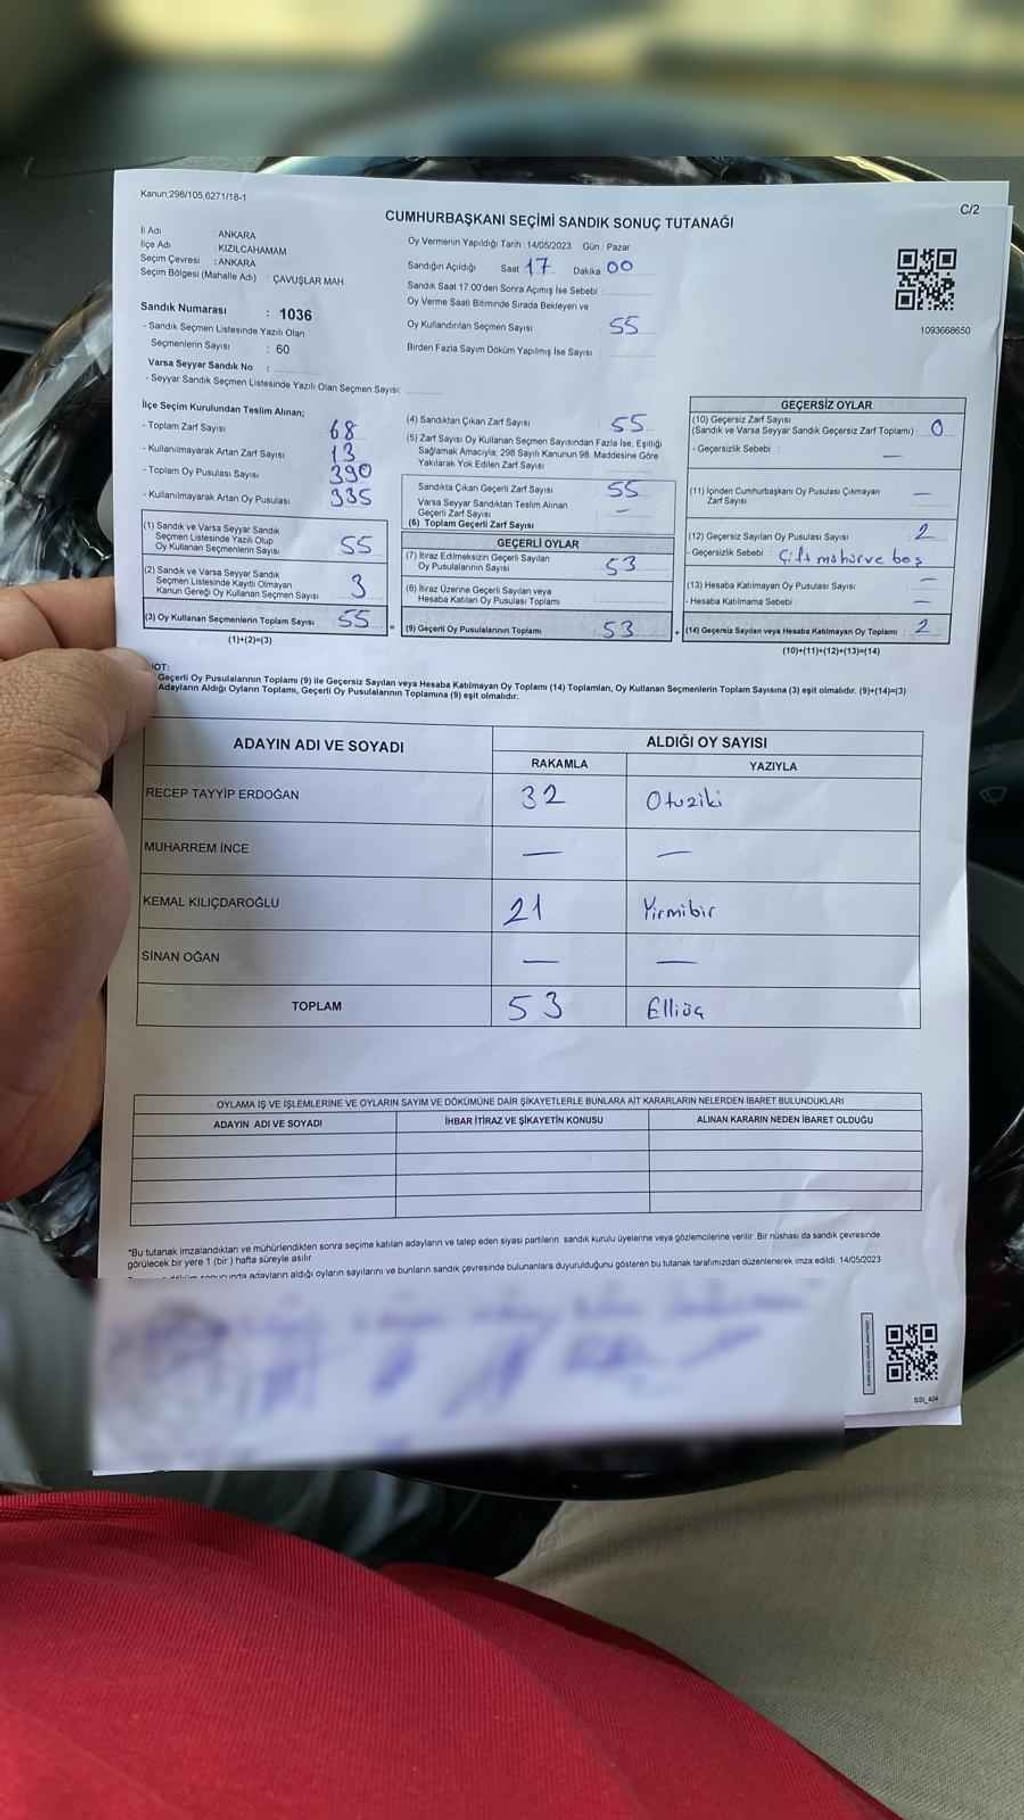 Kanun:298/105,6271/18-1
C/2
CUMHURBAŞKANI SEÇİMİ SANDIK SONUÇ TUTANAĞI
İl Adı ANKARA
İlçe Adı KIZILCAHAMAM
Seçim Çevresi : ANKARA
Seçim Bölgesi (Mahalle Adı) : ÇAVUŞLAR MAH.
Sandık Numarası : 1036
- Sandık Seçmen Listesinde Yazılı Olan
Seçmenlerin Sayısı : 60
Varsa Seyyar Sandık No :
- Seyyar Sandık Seçmen Listesinde Yazılı Olan Seçmen Sayısı:
Oy Vermenin Yapıldığı Tarih : 14/05/2023 Gün : Pazar
Sandığın Açıldığı Saat 17 Dakika 00
Sandık Saat 17.00'den Sonra Açılmış İse Sebebi :
Oy Verme Saati Bitiminde Sırada Bekleyen ve
Oy Kullandırılan Seçmen Sayısı 55
Birden Fazla Sayım Döküm Yapılmış İse Sayısı
1093668650
İlçe Seçim Kurulundan Teslim Alınan;
- Toplam Zarf Sayısı 68
- Kullanılmayarak Artan Zarf Sayısı 13
- Toplam Oy Pusulası Sayısı 390
- Kullanılmayarak Artan Oy Pusulası 335
(1) Sandık ve Varsa Seyyar Sandık
Seçmen Listesinde Yazılı Olup
Oy Kullanan Seçmenlerin Sayısı 55
(2) Sandık ve Varsa Seyyar Sandık
Seçmen Listesinde Kayıtlı Olmayan
Kanun Gereği Oy Kullanan Seçmen Sayısı 3
(3) Oy Kullanan Seçmenlerin Toplam Sayısı 55
(1)+(2)=(3)
(4) Sandıktan Çıkan Zarf Sayısı 55
(5) Zarf Sayısı Oy Kullanan Seçmen Sayısından Fazla İse, Eşitliği
Sağlamak Amacıyla; 298 Sayılı Kanunun 98. Maddesine Göre
Yakılarak Yok Edilen Zarf Sayısı
Sandıkta Çıkan Geçerli Zarf Sayısı 55
Varsa Seyyar Sandıktan Teslim Alınan
Geçerli Zarf Sayısı —
(6) Toplam Geçerli Zarf Sayısı
GEÇERLİ OYLAR
(7) İtiraz Edilmeksizin Geçerli Sayılan
Oy Pusulalarının Sayısı 53
(8) İtiraz Üzerine Geçerli Sayılan veya
Hesaba Katılan Oy Pusulası Toplamı
= (9) Geçerli Oy Pusulalarının Toplamı 53
GEÇERSİZ OYLAR
(10) Geçersiz Zarf Sayısı
(Sandık ve Varsa Seyyar Sandık Geçersiz Zarf Toplamı) 0
- Geçersizlik Sebebi : —
(11) İçinden Cumhurbaşkanı Oy Pusulası Çıkmayan
Zarf Sayısı —
(12) Geçersiz Sayılan Oy Pusulası Sayısı 2
- Geçersizlik Sebebi Çift mühürve boş
(13) Hesaba Katılmayan Oy Pusulası Sayısı —
- Hesaba Katılmama Sebebi —
+ (14) Geçersiz Sayılan veya Hesaba Katılmayan Oy Toplamı 2
(10)+(11)+(12)+(13)=(14)
NOT:
Geçerli Oy Pusulalarının Toplamı (9) ile Geçersiz Sayılan veya Hesaba Katılmayan Oy Toplamı (14) Toplamları, Oy Kullanan Seçmenlerin Toplam Sayısına (3) eşit olmalıdır. (9)+(14)=(3)
Adayların Aldığı Oyların Toplamı, Geçerli Oy Pusulalarının Toplamına (9) eşit olmalıdır.
ADAYIN ADI VE SOYADI
ALDIĞI OY SAYISI
RAKAMLA YAZIYLA
RECEP TAYYİP ERDOĞAN 32 Otuziki
MUHARREM İNCE — —
KEMAL KILIÇDAROĞLU 21 Yirmibir
SİNAN OĞAN — —
TOPLAM 53 Elliüç
OYLAMA İŞ VE İŞLEMLERİNE VE OYLARIN SAYIM VE DÖKÜMÜNE DAİR ŞİKAYETLERLE BUNLARA AİT KARARLARIN NELERDEN İBARET BULUNDUKLARI
ADAYIN ADI VE SOYADI İHBAR İTİRAZ VE ŞİKAYETİN KONUSU ALINAN KARARIN NEDEN İBARET OLDUĞU
*Bu tutanak imzalandıktan ve mühürlendikten sonra seçime katılan adayların ve talep eden siyasi partilerin sandık kurulu üyelerine veya gözlemcilerine verilir. Bir nüshası da sandık çevresinde
görülecek bir yere 1 (bir) hafta süreyle asılır.
adayların aldığı oyların sayılarını ve bunların sandık çevresinde bulunanlara duyurulduğunu gösteren bu tutanak tarafımızdan düzenlenerek imza edildi. 14/05/2023